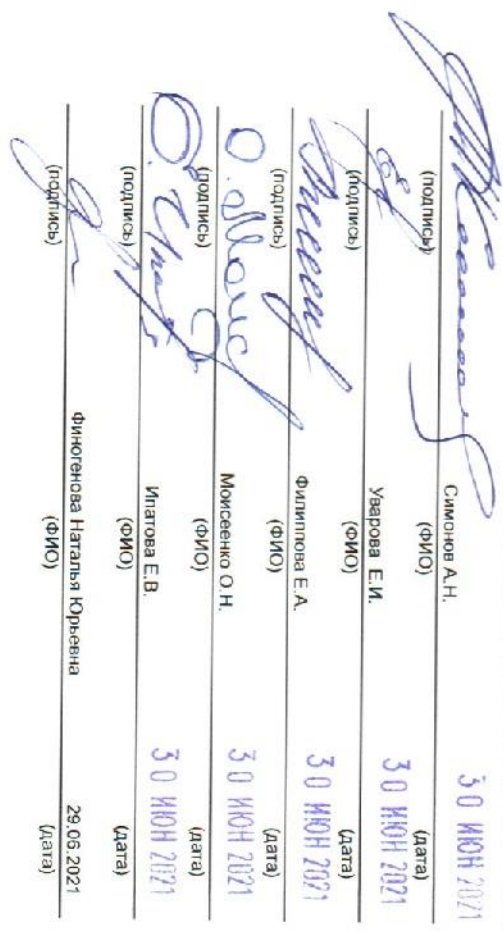 Симонов А.Н. 30 ИЮН 2021
(подпись) (ФИО) (дата)
Уварова Е.И. 30 ИЮН 2021
(подпись) (ФИО) (дата)
Филиппова Е.А. 30 ИЮН 2021
(подпись) (ФИО) (дата)
Моисеенко О.Н. 30 ИЮН 2021
(подпись) (ФИО) (дата)
Ипатова Е.В. 30 ИЮН 2021
(подпись) (ФИО) (дата)
Финогенова Наталья Юрьевна 29.06.2021
(подпись) (ФИО) (дата)